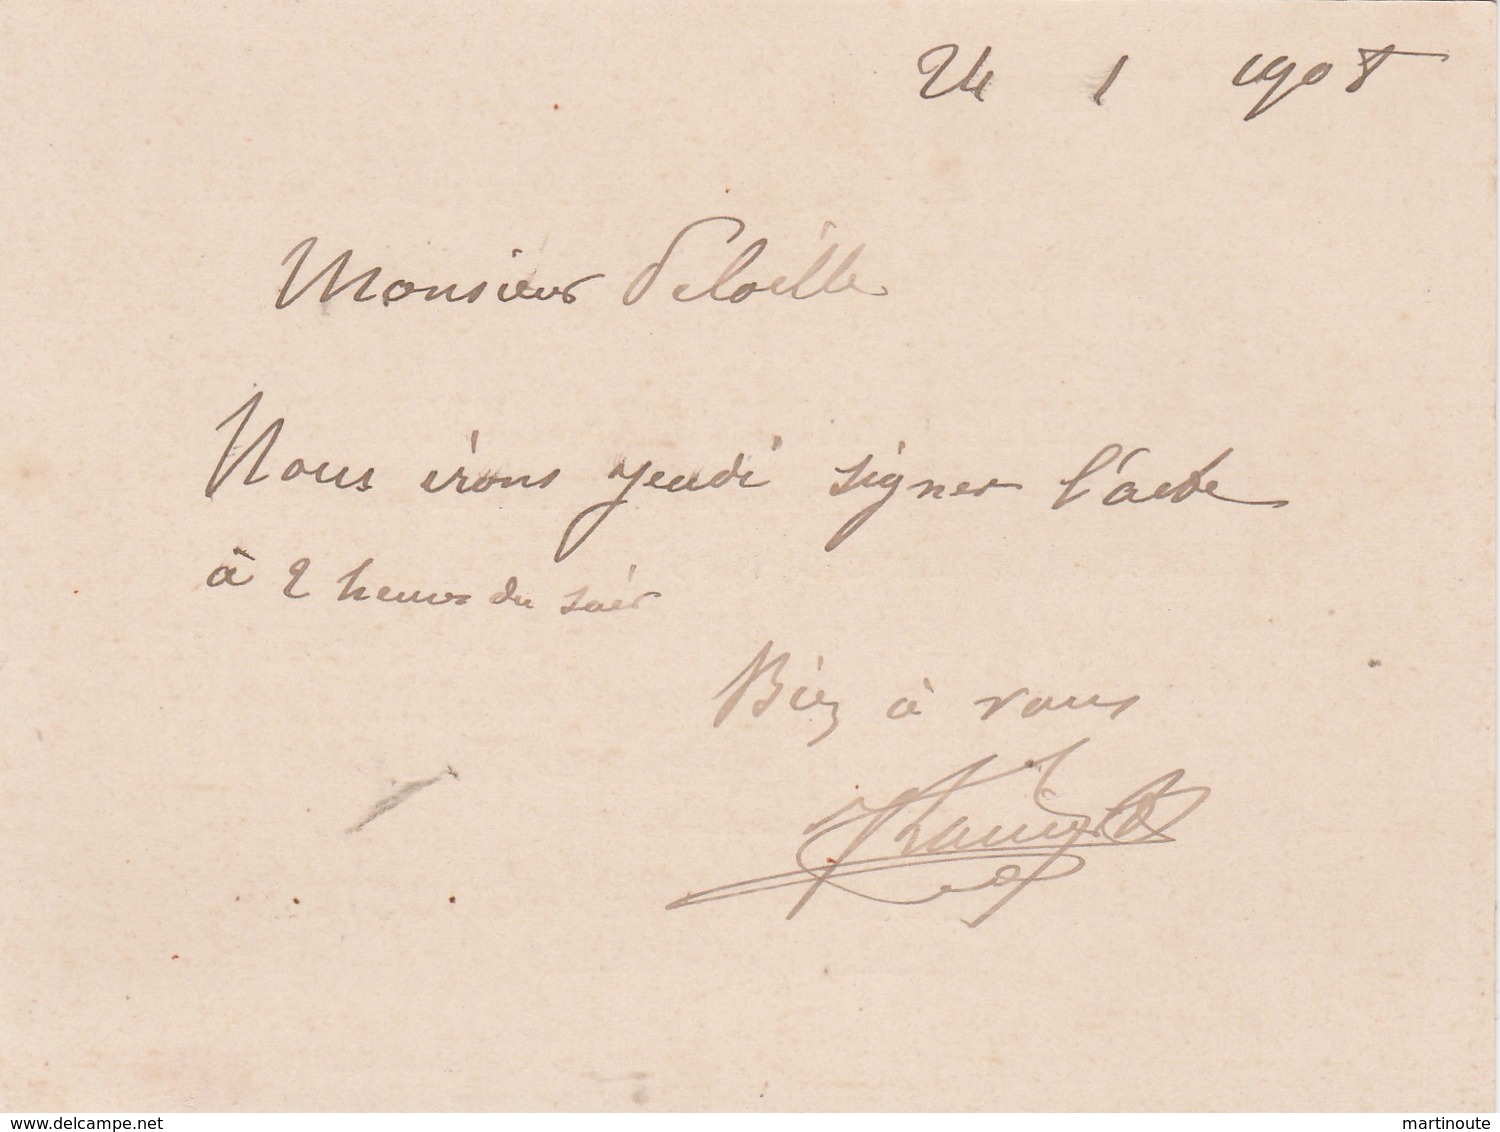 24 1 1908
Monsieur Deloëlle
Nous irons jeudi signer l'acte
à 2 heures du soir
Bien à vous
www.delcampe.net
martinoute